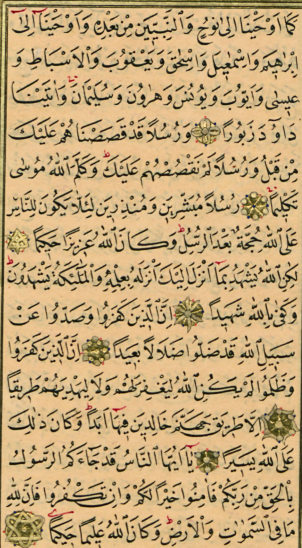 كَمَا اَوْحَيْنَا اِلٰى نُوحٍ وَالنَّبِيّٖنَ مِنْ بَعْدِهٖ وَاَوْحَيْنَا اِلٰى
اِبْرٰهِيمَ وَاِسْمٰعِيلَ وَاِسْحٰقَ وَيَعْقُوبَ وَالْاَسْبَاطِ وَ
عِيسٰى وَاَيُّوبَ وَيُونُسَ وَهٰرُونَ وَسُلَيْمَانَ وَاٰتَيْنَا
دَاوُدَ زَبُورًا وَرُسُلًا قَدْ قَصَصْنَاهُمْ عَلَيْكَ
مِنْ قَبْلُ وَرُسُلًا لَمْ نَقْصُصْهُمْ عَلَيْكَ وَكَلَّمَ اللّٰهُ مُوسٰى
تَكْلِيمًا رُسُلًا مُبَشِّرِينَ وَمُنْذِرِينَ لِئَلَّا يَكُونَ لِلنَّاسِ
عَلَى اللّٰهِ حُجَّةٌ بَعْدَ الرُّسُلِ وَكَانَ اللّٰهُ عَزِيزًا حَكِيمًا
لٰكِنِ اللّٰهُ يَشْهَدُ بِمَا اَنْزَلَ اِلَيْكَ اَنْزَلَهُ بِعِلْمِهٖ وَالْمَلٰئِكَةُ يَشْهَدُونَ
وَكَفٰى بِاللّٰهِ شَهِيدًا اِنَّ الَّذِينَ كَفَرُوا وَصَدُّوا عَنْ
سَبِيلِ اللّٰهِ قَدْ ضَلُّوا ضَلَالًا بَعِيدًا اِنَّ الَّذِينَ كَفَرُوا
وَظَلَمُوا لَمْ يَكُنِ اللّٰهُ لِيَغْفِرَ لَهُمْ وَلَا لِيَهْدِيَهُمْ طَرِيقًا
اِلَّا طَرِيقَ جَهَنَّمَ خَالِدِينَ فِيهَا اَبَدًا وَكَانَ ذٰلِكَ
عَلَى اللّٰهِ يَسِيرًا يَا اَيُّهَا النَّاسُ قَدْ جَاءَكُمُ الرَّسُولُ
بِالْحَقِّ مِنْ رَبِّكُمْ فَاٰمِنُوا خَيْرًا لَكُمْ وَاِنْ تَكْفُرُوا فَاِنَّ لِلّٰهِ
مَا فِى السَّمٰوَاتِ وَالْاَرْضِ وَكَانَ اللّٰهُ عَلِيمًا حَكِيمًا